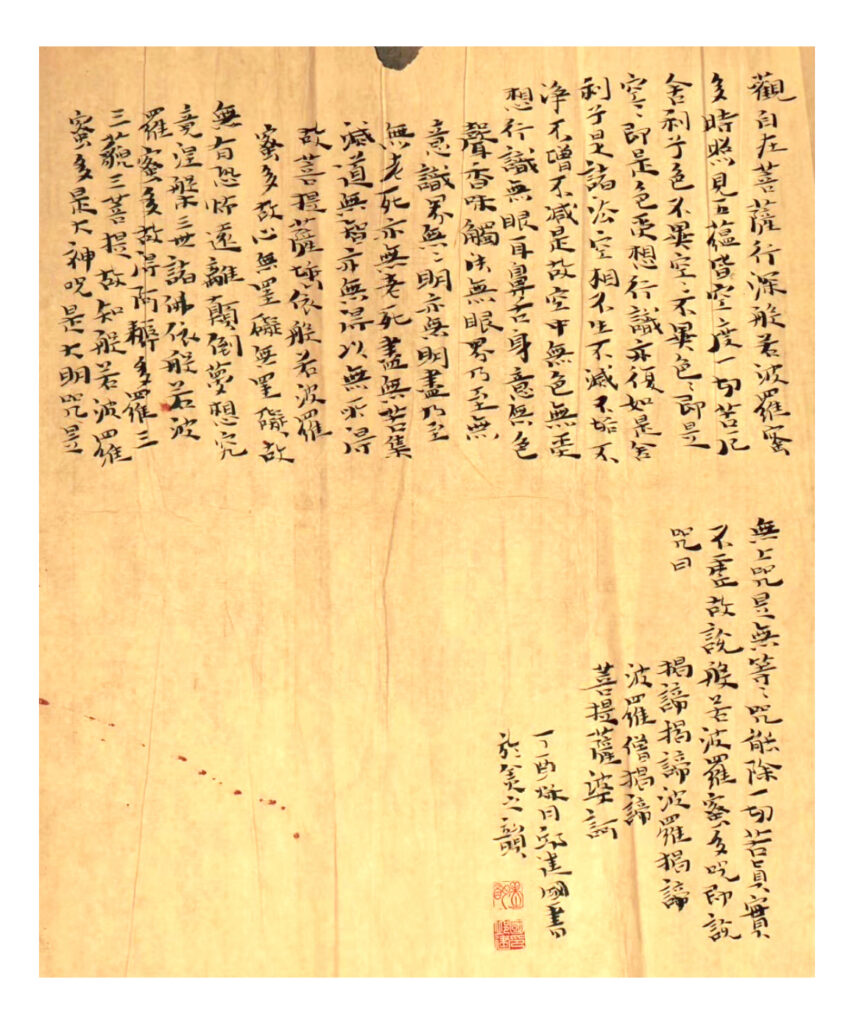 觀自在菩薩行深般若波羅蜜
多時照見五蘊皆空度一切苦厄
舍利子色不異空〻不異色〻即是
空〻即是色受想行識亦復如是舍
利子是諸法空相不生不滅不垢不
淨不增不減是故空中無色無受
想行識無眼耳鼻舌身意無色
聲香味觸法無眼界乃至無
意識界無〻明亦無明盡乃至
無老死亦無老死盡無苦集
滅道無智亦無得以無所得
故菩提薩埵依般若波羅
蜜多故心無罣礙無罣礙故
無有恐怖遠離顛倒夢想究
竟涅槃三世諸佛依般若波
羅蜜多故得阿耨多羅三
三藐三菩提故知般若波羅
蜜多是大神咒是大明咒是
無上咒是無等〻咒能除一切苦真實
不虛故說般若波羅蜜多咒即說
咒曰
揭諦揭諦波羅揭諦
波羅僧揭諦
菩提薩婆訶
丁酉秋月國書
於之韻